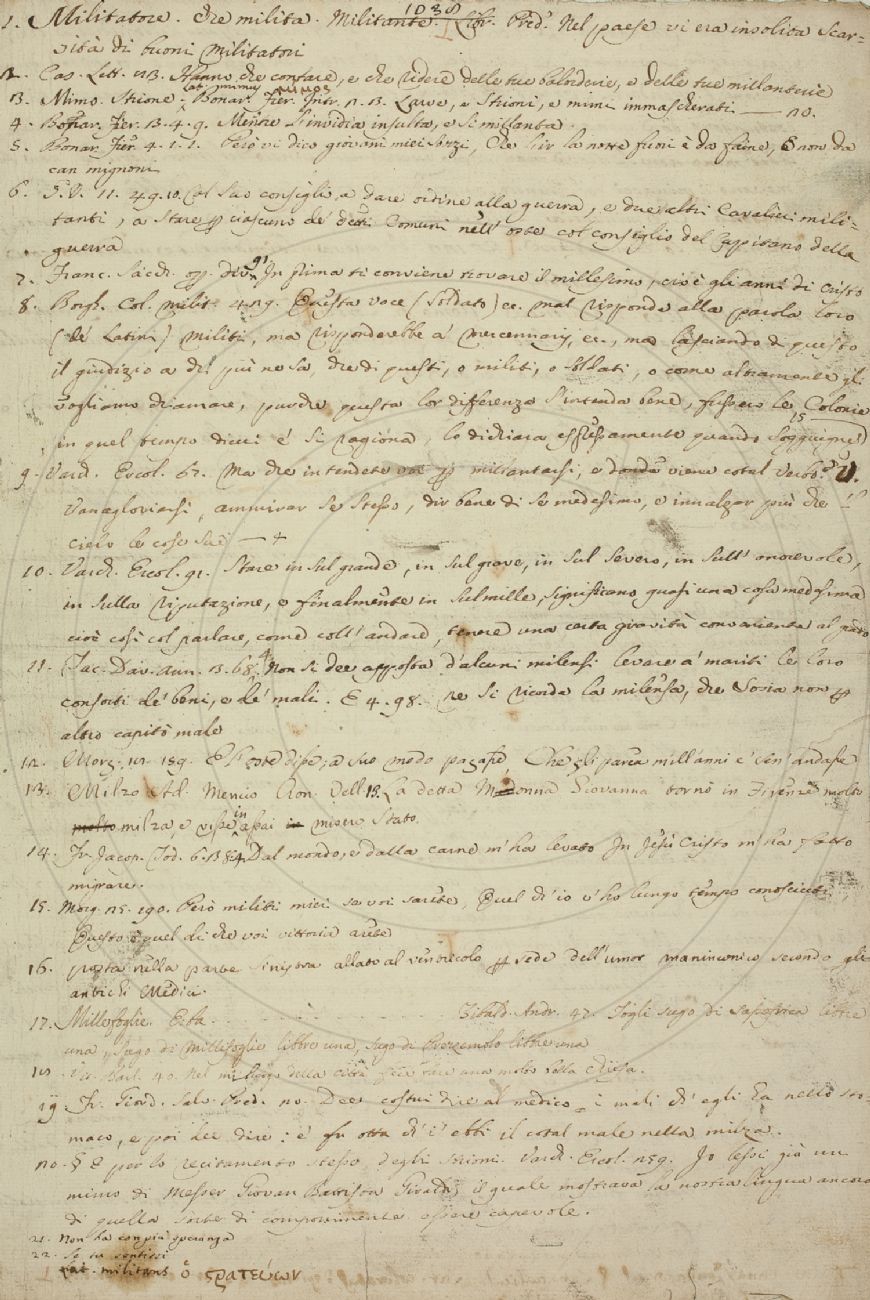 1038
1. Militatore. che milita. Militante. Libr. Pred. Nel paese vi era insolita scar=
sità di buoni militatori
2. Cas. Lett. 73. Hanno che contare, e che ridere delle tue balorderie, e delle tue millanterie
Lat. mimus μῖμος
3. Mimo. Strione. Bonar. Fier. Intr. 2. 3. Larve, e strioni, e mimi immascherati — 20.
4. Bonar. Fier. 3. 4. 9. Mentre l'invidia insulta, e si millanta.
5. Bonar. Fier. 4. 1. 1. Però vi dico giovani miei sorzi, Che star la notte fuori è da faine, E non da
can mignoni
6. G. V. 11. 49. 10. Col suo consiglio a dare ordine alla guerra, e due altri Cavalieri mili=
tanti, a stare p ciascuno de' detti Comuni nell' oste col consiglio del Capitano della
guerra
7. Franc. Sacch. op. div. 91 In prima ti conviene trovare il millesimo, cioè gli anni di Cristo
8. Borgh. Col. milit. 429. Questa voce (Soldato) ec. mal risponde alla parola loro
(de' Latini) Militi, ma risponderebbe a' mercennarj, ec., ma lasciando di questo
il giudizio a chi più ne sa, che di questi, o militi, o soldati, o come altramente gli
vogliamo chiamare, purchè questa lor differenza s'intenda bene, fussero le Colonie
15
in quel tempo di cui e' si ragiona, lo dichiara espressamente quando soggiugne)
9. Varch. Ercol. 67. Ma che intendete voi p millantarsi, e donde viene cotal verbo? V.
Vanagloriarsi, ammirar se stesso, dir bene di se medesimo, e innalzar più che 'l
cielo le cose sue — +
10. Varch. Ercol. 91. Stare in sul grande, in sul grave, in sul severo, in sull' onorevole,
in sulla riputazione, e finalmente in sul mille, significano quasi una cosa medesima
cioè così col parlare, come coll' andare, tenere una certa gravità conveniente al grado
11. Tac. Dav. ann. 3. 68. Non si dee apposta d'alcuni milensi levare a' mariti le loro
consorti de' beni, e de' mali. E 4. 98. ne si ricorda la milensa, che Sosia non p
altro capitò male
12. Morg. 18. 189. E l'oste disse, a suo modo pagasse, Che gli parea mill'anni e' sen'andasse
13. Milzo Ad. Mencio Cron. Vell. 13. La detta Madonna Giovanna tornò in Firenze molto
milza, e visse in assai misero stato.
14. Fr. Jacop. Tod. 6. 13. 24. Dal mondo, e dalla carne m'ha levato In Jesù Cristo m'ha fatto
migrare.
15. Morg. 25. 190. Però militi miei se voi sarete, Quel ch'io v'ho lungo tempo conosciuti,
Questo è quel dì che voi vittoria arete
16. posta nella parte sinistra allato al ventricolo p sede dell' umor maninconico secondo gli
antichi Medici.
17. Millefoglie. Erba. Tibald. Andr. 47. Togli sugo di saposetica libbre
una, sugo di Millefoglie libbre una, sugo di Prezzemolo libbre una
18. Vit. Barl. 40. Nel miluogo della città fece fare una molto bella chiesa.
19. Fr. Giord. Salv. Pred. 20. Dee costui dire al medico i mali ch' egli ha nello sto=
maco, e poi dee dire: e' fu otta ch' i' ebbi il cotal male nella milza.
20. § E per lo recitamento stesso degli strioni. Varch. Ercol. 259. Io lessi già un
mimo di Messer Giovan Battista Giraldi, il quale mostrava la nostra lingua ancora
di quella sorte di componimento essere capevole.
21. Non ha con più speranza
22. Se tu sentissi
Lat. militans ὁ στρατεύων